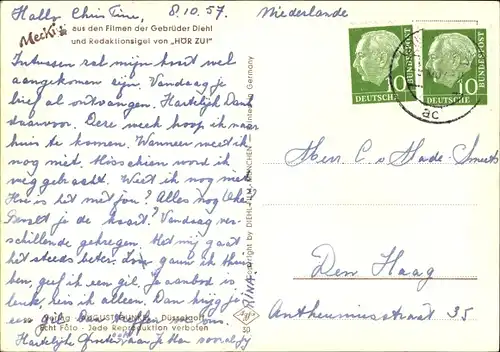 Hallo Christine, 8.10.57.
Niederlande
Mecki
aus den Filmen der Gebrüder Diehl
und Redaktionsigel von „HÖR ZU!“
10 DEUTSCHE BUNDESPOST
10 DEUTSCHE BUNDESPOST
Intussen zal mijn kaart wel
aangekomen zijn. Vandaag je
brief al ontvangen. Hartelijk Dank
daarvoor. Deze week hoop ik naar
huis te komen. Wanneer weet ik
nog niet. Misschien word ik
weg gebracht. Weet ik nog niet
Hoe is het met jou? Alles nog Oké?
je de kaart? Vandaag ver-
schillende gekregen. Met mij gaat
het steeds beter. gauw ik thuis
ben, geef ik een gil. Je aanbod is
leuk, reis ik alleen. Dan krijg je
een gil. Dan treffen we ons.
Hartelijke Groeten
RINA
Copyright by DIEHL-FILM, MÜNCHEN Printed in Germany
Verlag AUGUST GUNKEL Düsseldorf
Echt Foto - Jede Reproduktion verboten
30
Den Haag
35